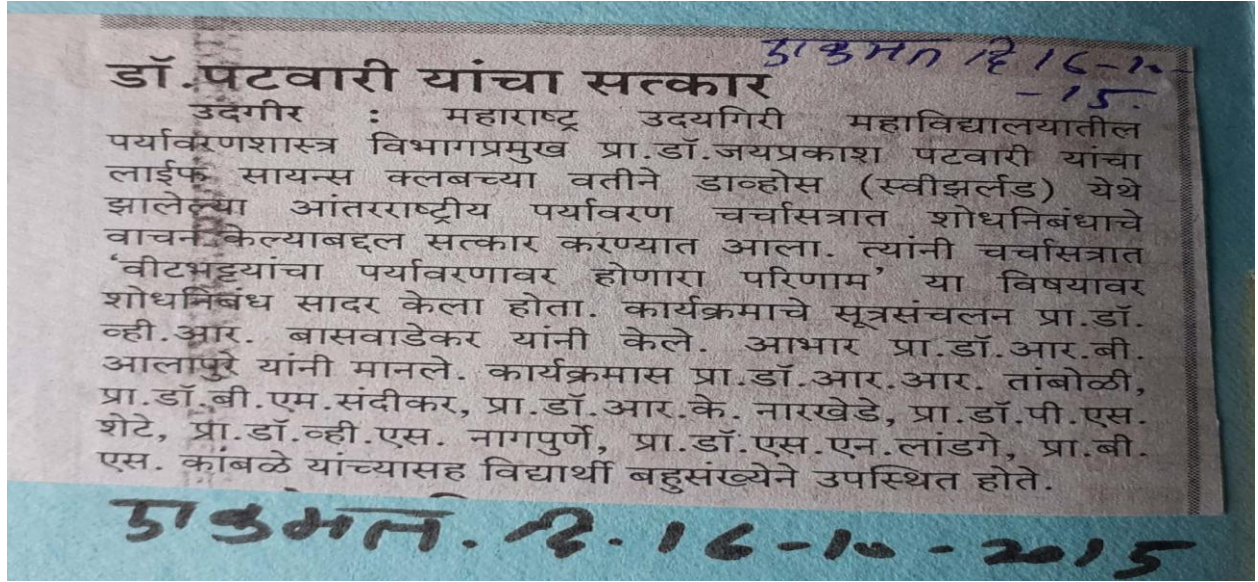 डाकमत दि 16-10-
-15.
डॉ.पटवारी यांचा सत्कार
उदगीर : महाराष्ट्र उदयगिरी महाविद्यालयातील
पर्यावरणशास्त्र विभागप्रमुख प्रा.डॉ.जयप्रकाश पटवारी यांचा
लाईफ सायन्स क्लबच्या वतीने डाव्होस (स्वीझर्लड) येथे
झालेल्या आंतरराष्ट्रीय पर्यावरण चर्चासत्रात शोधनिबंधाचे
वाचन केल्याबद्दल सत्कार करण्यात आला. त्यांनी चर्चासत्रात
‘वीटभट्ट्यांचा पर्यावरणावर होणारा परिणाम’ या विषयावर
शोधनिबंध सादर केला होता. कार्यक्रमाचे सूत्रसंचलन प्रा.डॉ.
व्ही.आर. बासवाडेकर यांनी केले. आभार प्रा.डॉ.आर.बी.
आलापुरे यांनी मानले. कार्यक्रमास प्रा.डॉ.आर.आर. तांबोळी,
प्रा.डॉ.बी.एम.संदीकर, प्रा.डॉ.आर.के. नारखेडे, प्रा.डॉ.पी.एस.
शेटे, प्रा.डॉ.व्ही.एस. नागपुर्णे, प्रा.डॉ.एस.एन.लांडगे, प्रा.बी.
एस. कांबळे यांच्यासह विद्यार्थी बहुसंख्येने उपस्थित होते.
डाकमत. दि. 16-10-2015